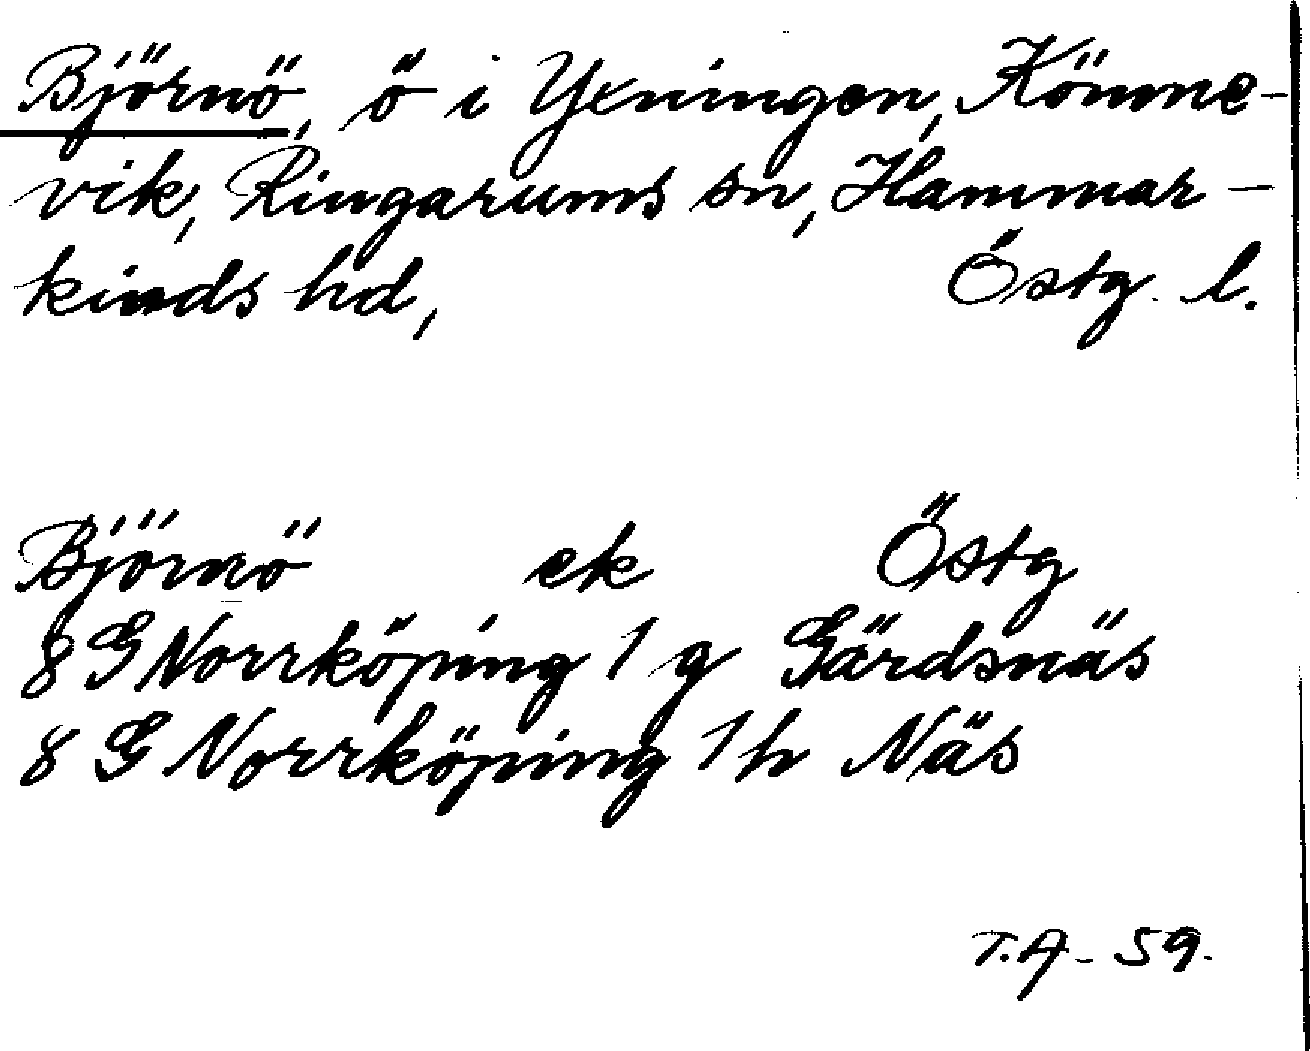 Björnö, ö i Yxningen, Könne-
vik, Ringarums sn, Hammar-
kinds hd, Östg. l.
Björnö ek Östg
8 G Norrköping 1 g Gärdsnäs
8 G Norrköping 1 h Näs
T.A - 59.